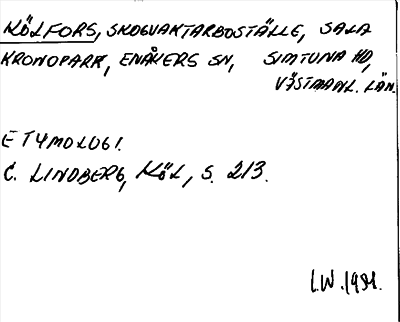 KÖLFORS, SKOGVAKTARBOSTÄLLE, SALA
KRONOPARK, ENÅKERS SN, SIMTUNA HD,
VÄSTMANL. LÄN.
ETYMOLOGI.
C. LINDBERG, KÖL, S. 213.
I.W. 1981.